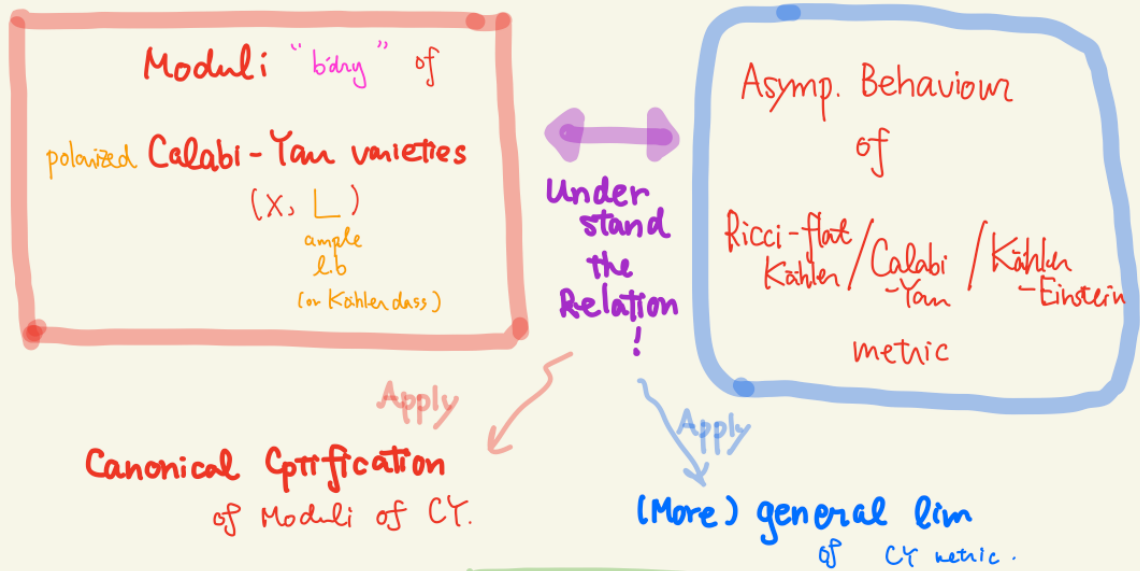 Moduli "b'dry" of
polarized Calabi-Yau varieties
(X, L)
ample
l.b
(or Kähler class)
Under
stand
the
Relation
!
Asymp. Behaviour
of
Ricci-flat Kähler / Calabi-Yau / Kähler-Einstein
metric
Apply
Canonical Cptification
of Moduli of CY.
Apply
(More) general lim
of CY metric.